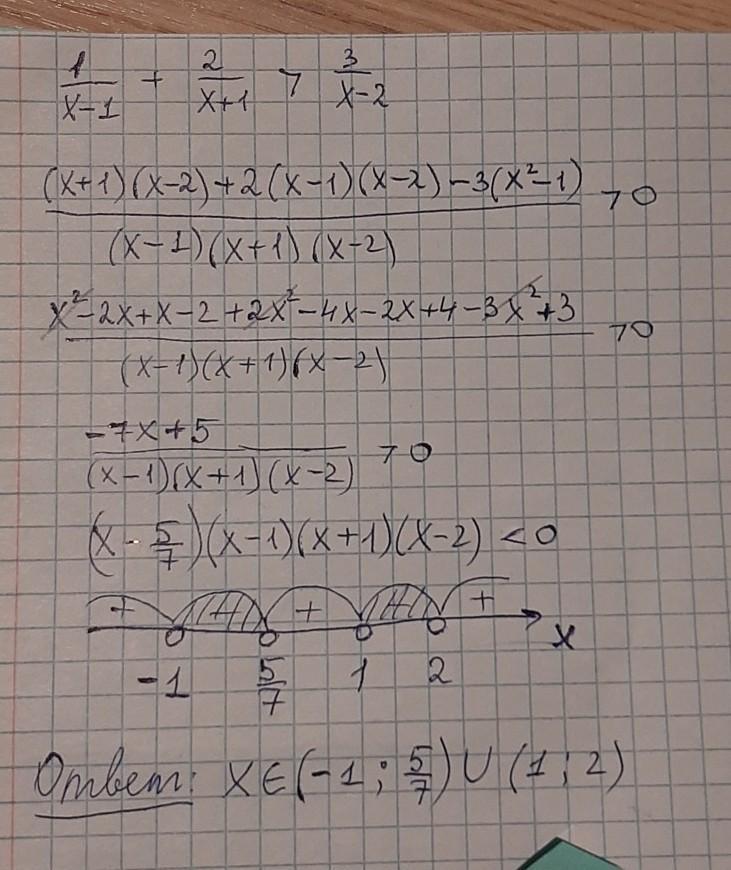 1/(x-1) + 2/(x+1) > 3/(x-2)
((x+1)(x-2)+2(x-1)(x-2)-3(x²-1))/((x-1)(x+1)(x-2)) >0
(x²-2x+x-2+2x²-4x-2x+4-3x²+3)/((x-1)(x+1)(x-2)) >0
(-7x+5)/((x-1)(x+1)(x-2)) >0
(x-5/7)(x-1)(x+1)(x-2) <0
+ + + x
-1 5/7 1 2
Ответ: x∈(-1; 5/7)∪(1; 2)